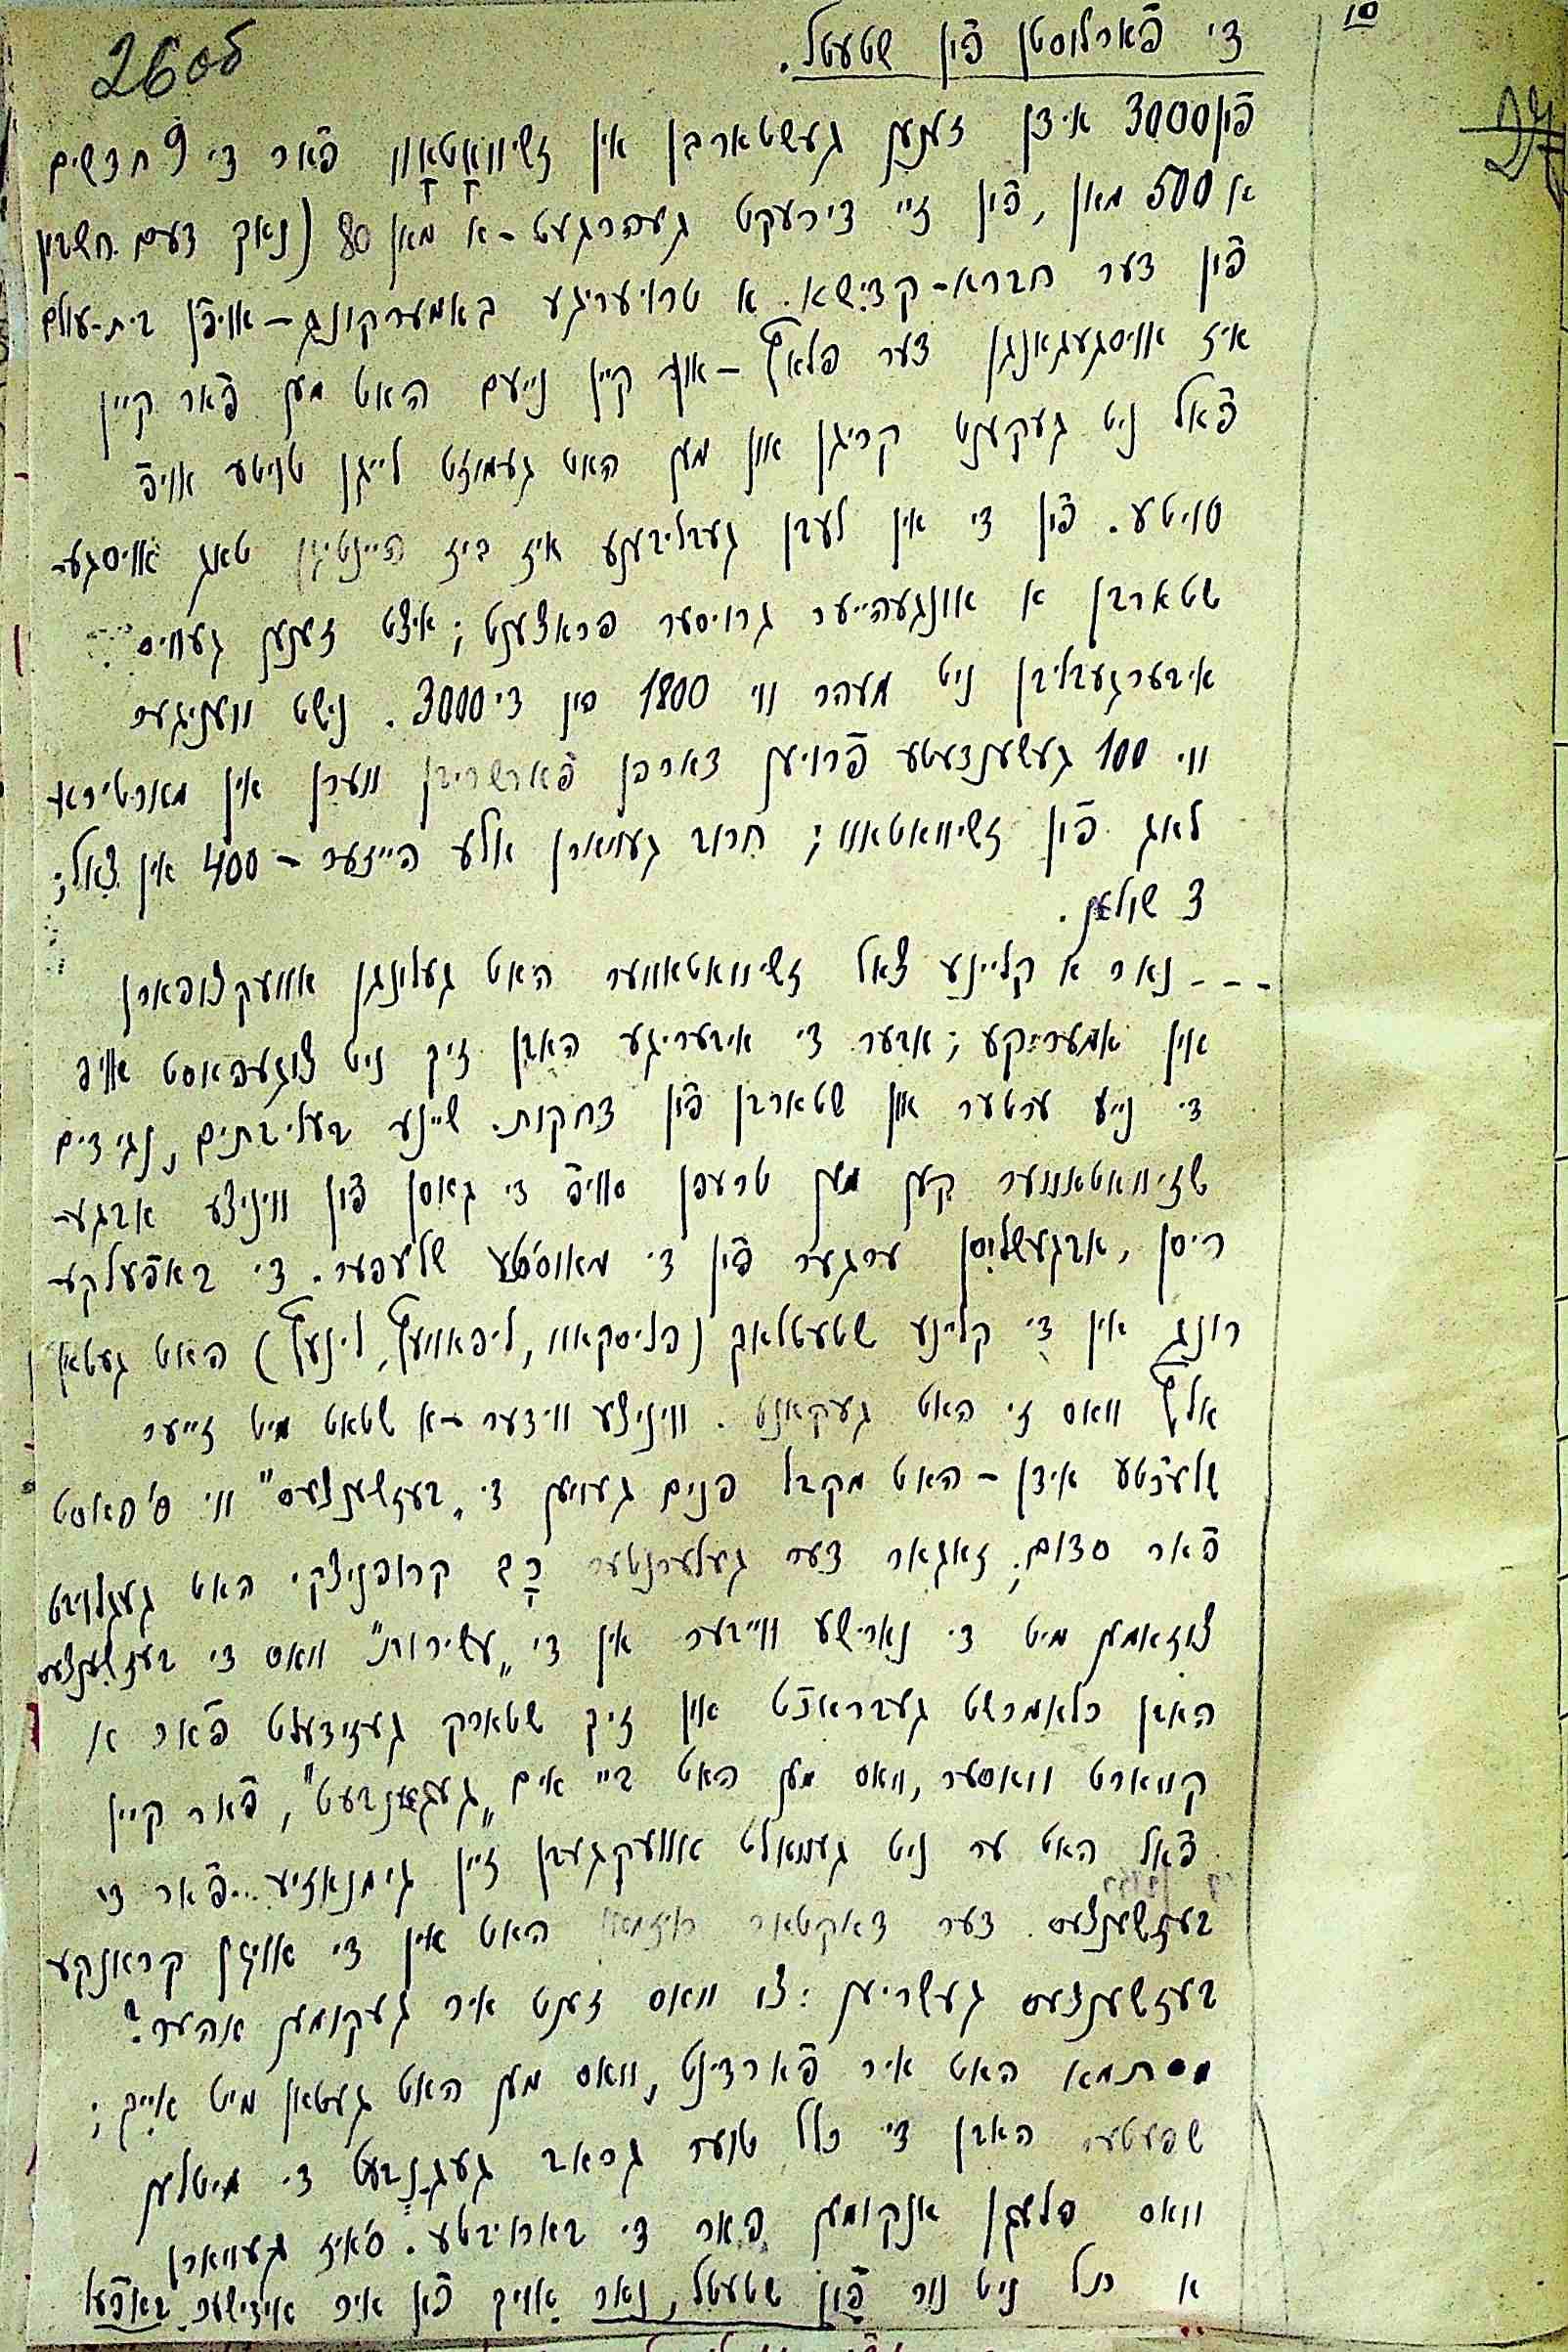 10
26 об
27
די פֿארלוסטן פֿון שטעטל.
פֿון 3000 אידן זענען געשטארבן אין זשיוואָטאָוו פֿאר די 9 חדשים
א 500 מאן, פֿון זיי דירעקט געהרגעט - א מאן 80 (נאך דעם חשבון
פֿון דער חברא-קדישא. א טרויעריגע באמערקונג - אויפֿן בית-עולם
איז אויסגעגאנגן דער פלאץ - און קיין נייעם האט מען פֿאר קיין
פֿאל ניט געקענט קריגן און מען האט געמוזט לייגן טויטע אויפֿ
טויטע. פֿון די אין לעבן געבליבענע איז ביז היינטיגן טאג אויסגע-
שטארבן א אונגעהייער גרויסער פראצענט; איצט זענען געוויס
איבערגעבליבן ניט מעהר ווי 1800 פון די 3000. נישט וועניגער
ווי 100 געשענדעטע פֿרויען דארפן פֿארשריבן ווערן אין מארטירא-
לאג פֿון זשיוואטאוו; חרוב געווארן אלע הייזער - 400 אין צאל;
3 שולען.
--- נאר א קליינע צאל זשיוואטאווער האט געלונגן אוועקצופארן
אין אמעריקע; אבער די איבעריגע האבן זיך ניט צוגעפאסט אויפ
די נייע ערטער און שטארבן פֿון דחקות. שיינע בעלי-בתים, נגידים
זשיוואטאווער קען מען טרעפן אויפֿ די גאסן פֿון וויניצע אבגע-
ריסן, אבגעשליסן ערגער פֿון די מאוס'טע שלעפער. די באפֿעלקע-
רונג אין די קליינע שטעטלאך (פליסקאוו, ליפאוועץ, לינעץ) האט געטאן
אלץ וואס זי האט געקאנט. וויניצע ווידער - א שטאט מיט זייער
שלעכטע אידן - האט מקבל פנים געווען די „בעזשענצעס" ווי ס'פאסט
פֿאר סדום; זאגאר דער געלערנטער קרופניצקי האט געגלויבט
צוזאמען מיט די נארישע ווייבער אין די „עשירות" וואס די בעזשענצעס
האבן כלאמרשט געבראכט און זיך שטארק געזידעלט פֿאר א
קווארט וואסער, וואס מען האט ביי אים „געגנבעט", פֿאר קיין
פֿאל האט ער ניט געוואלט אוועקגעבן זיין גימנאזיע... פֿאר די
בעזשענצעס. דער דאקטאר האט אין די אויגן קראנקע
בעזשענצעס געשריען: צו וואס זענט איר געקומען אהער?
מסתמא האט איר פֿארדינט, וואס מען האט געטאן מיט אייך;
שפעטער האבן די כלל טוער גראב געגנבעט די מיטלען
וואס פלעגן אנקומען פאר די בארויבטע. ס'איז געווארן
א תל ניט נור פֿון שטעטל, נאר אויך פֿאן איר אידישער באפֿעל